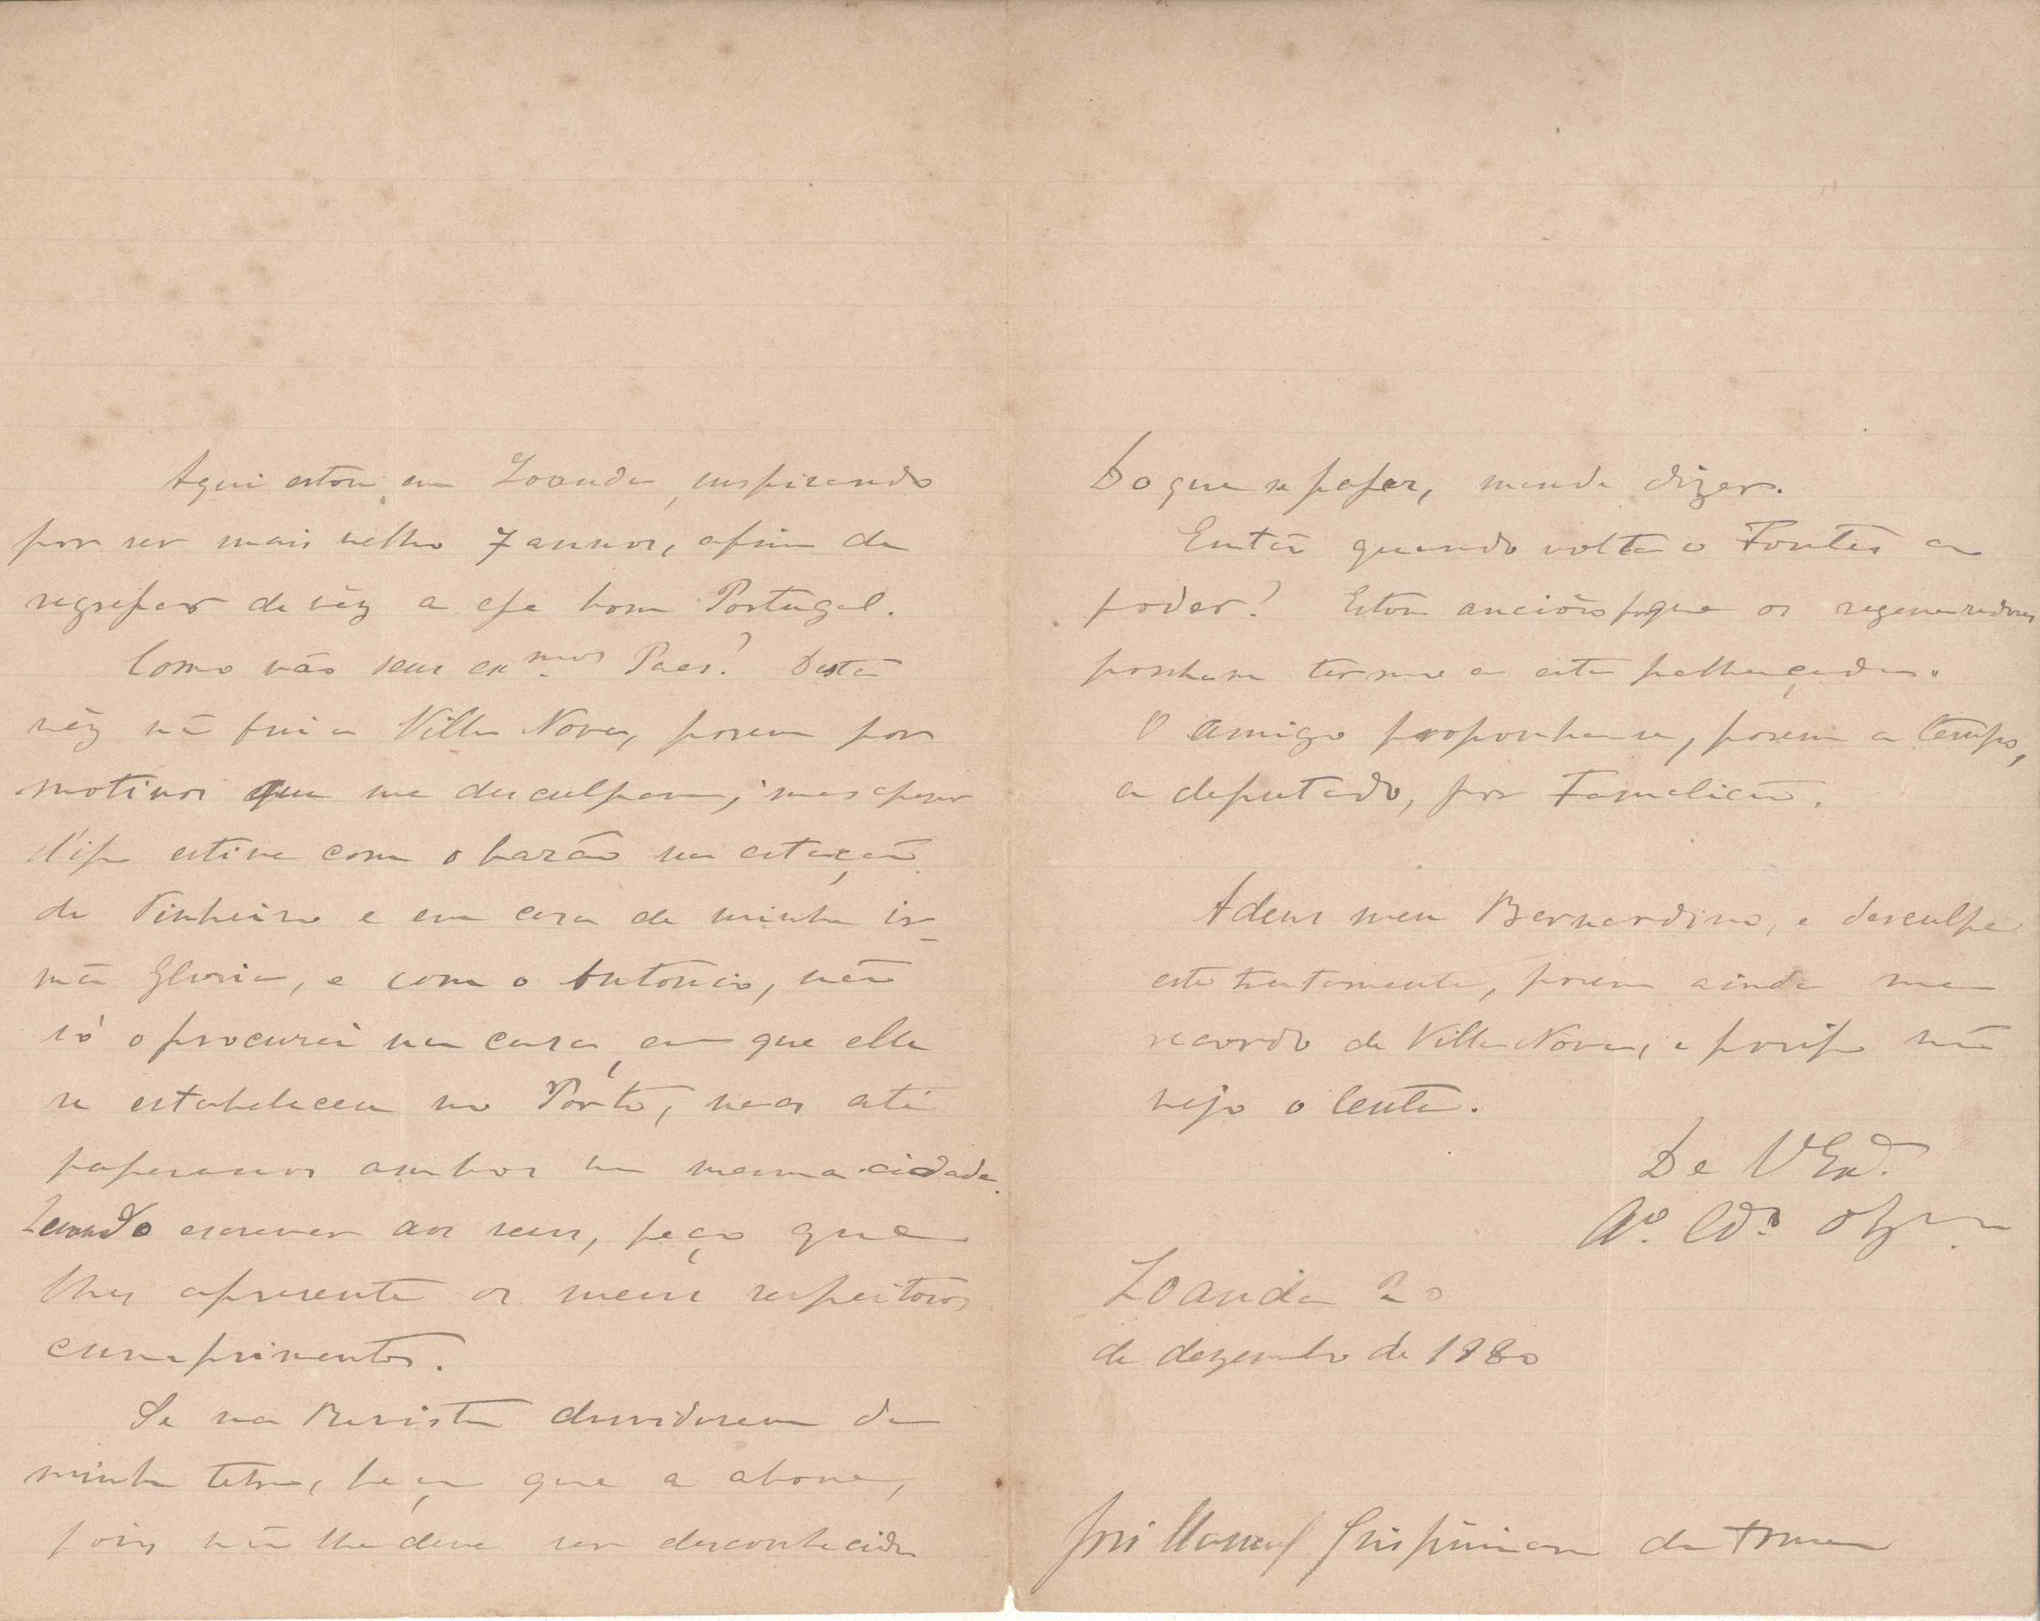 Aqui estou em Loanda, suspirando
por ser mais velho 7 annos, afim de
regressar de vêz a esse bom Portugal.
Como vão seus ex.mos Paes? Desta
vêz não fui a Villa Nova, porem por
motivos que me desculpam; mas apesar
d'isso estive com o barão na estação
de Pinheiro e em casa de minha ir-
mã Gloria, e com o Antonio, não
só o procurei na casa, em que elle
se estabeleceu no Porto, mas até
passeamos ambos na mesma cidade.
Quando escrever aos seus, peço que
lhes apresente os meus respeitosos
cumprimentos.
Se na Revista duvidarem da
minha letra, peço que a abone,
pois não lhe deve ser desconhecida
Do que se passar, mande dizer.
Então quando volta o Fontes ao
poder? Estou ancioso pque os regeneradores
ponham termo a esta palhaçada.
O amigo proponha-se, porem a tempo,
a deputado, por Famalicão.
Adeus meu Bernardino, e desculpe
este tratamento, porem ainda me
recordo de Villa Nova, e por isso não
vejo o lente.
De V Ex.ª
A.º C.do Obg.
Loanda 20
de dezembro de 1880
José Manoel da